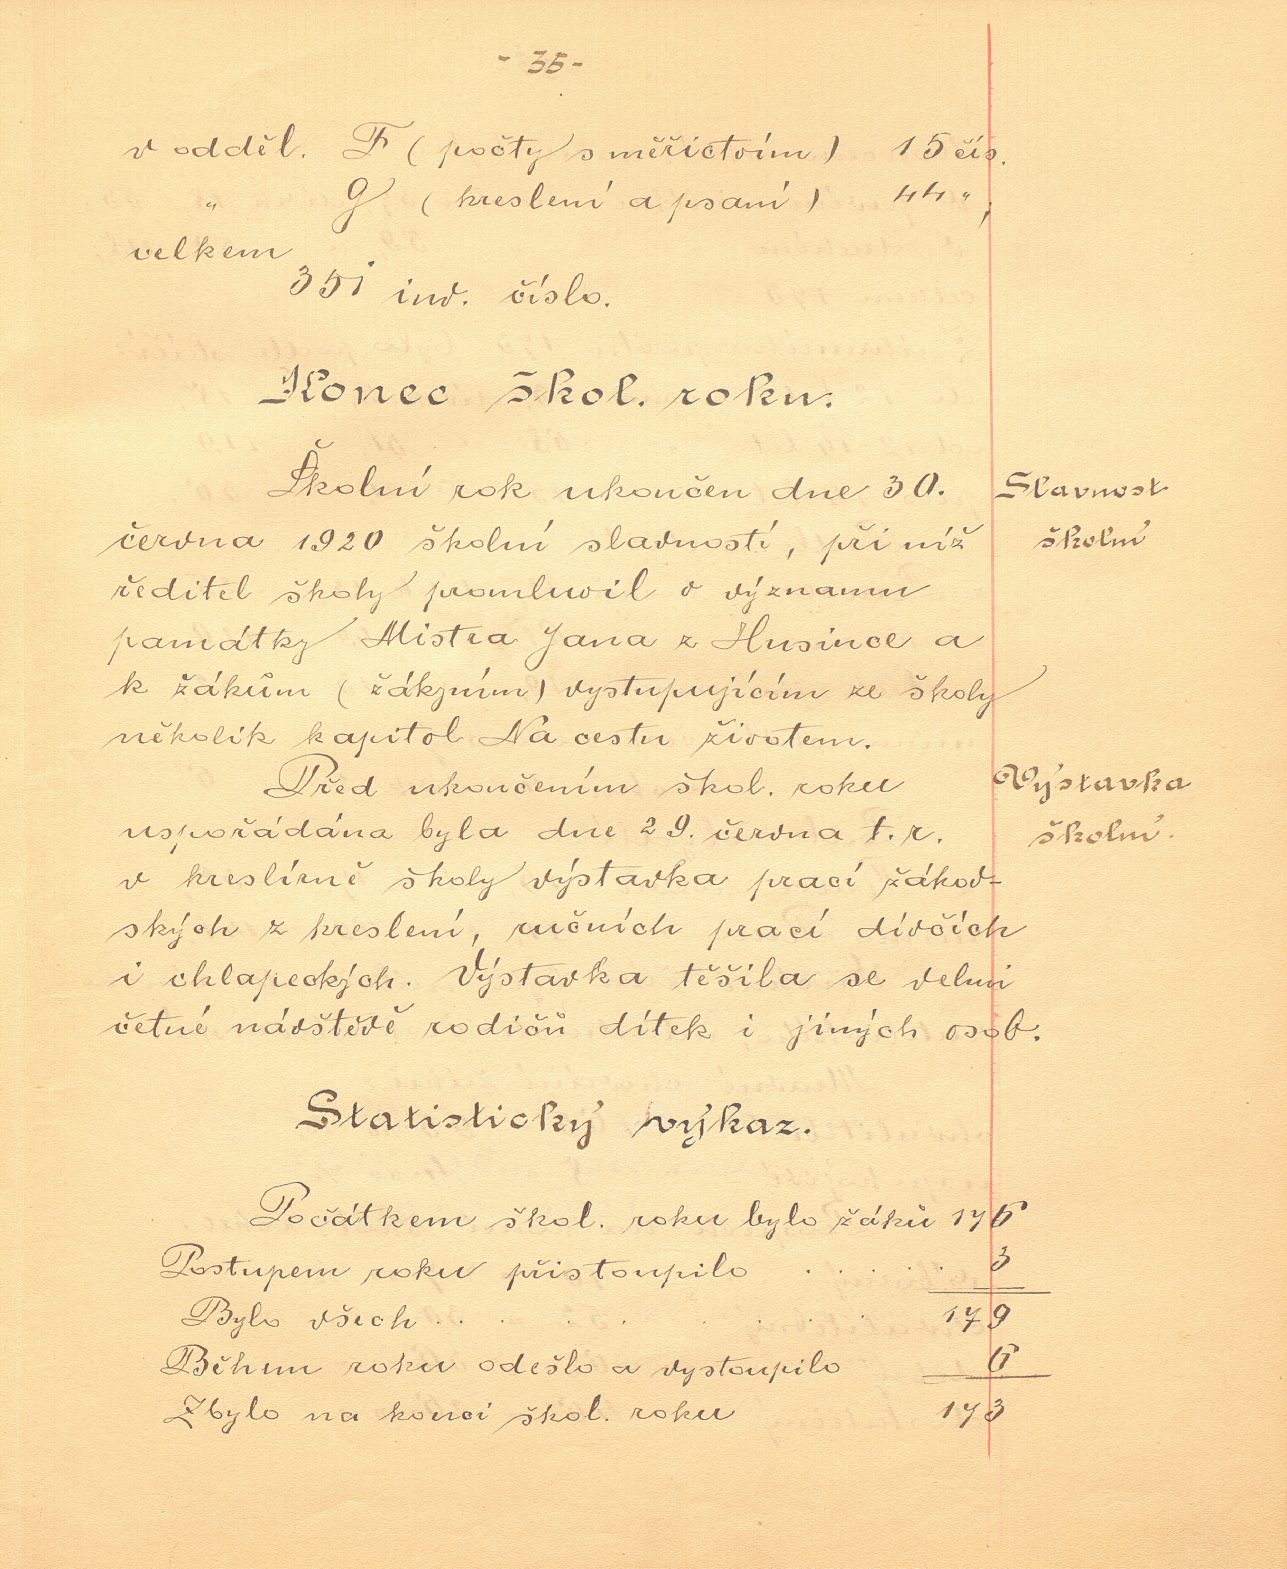 - 35 -
v odděl. F ( počty s měřictvím ) 15 čís.
„ G ( kreslení a psaní ) 44 „,
celkem
351 inv. číslo.
Konec škol. roku.
Školní rok ukončen dne 30.
Slavnost
června 1920 školní slavností, při níž
školní
ředitel školy promluvil o významu
památky Mistra Jana z Husince a
k žákům ( žákyním ) vystupujícím ze školy
několik kapitol Na cestu životem.
Před ukončením škol. roku
Výstavka
uspořádána byla dne 29. června t. r.
školní.
v kreslírně školy výstavka prací žákov-
ských z kreslení, ručních prací dívčích
i chlapeckých. Výstavka těšila se velmi
četné návštěvě rodičů dítek i jiných osob.
Statistický výkaz.
Počátkem škol. roku bylo žáků 176
Postupem roku přistoupilo . . . . . 3
Bylo všech . . . . . . . . 179
Během roku odešlo a vystoupilo 6
Zbylo na konci škol. roku 173